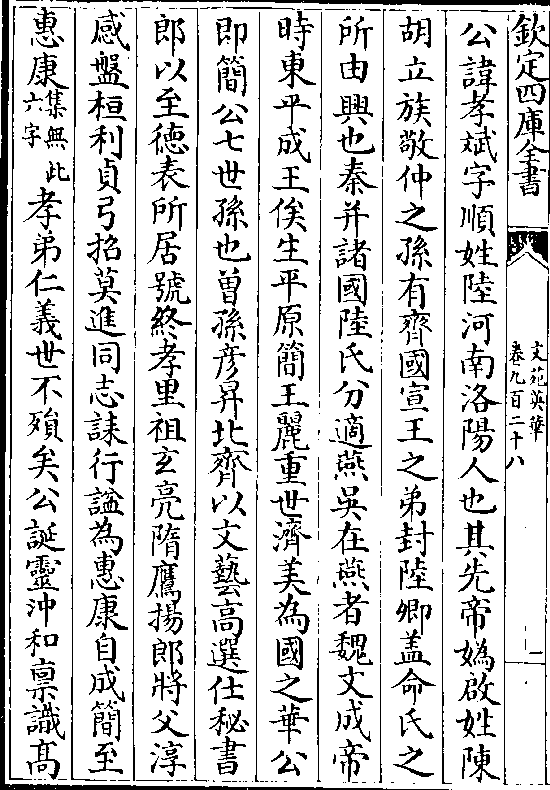 欽定四庫全書
文苑英華
卷九百二十八
一
公諱孝斌字順姓陸河南洛陽人也其先帝媯啟姓陳
胡立族敬仲之孫有齊國宣王之弟封陸卿盖命氏之
所由興也秦并諸國陸氏分適燕吳在燕者魏文成帝
時東平成王俟生平原簡王麗重世濟美為國之華公
即簡公七世孫也曽孫彦昇北齊以文藝高選仕秘書
郎以至德表所居號終孝里祖玄亮隋鷹揚郎將父淳
感盤桓利貞弓招莫進同志誄行謚為惠康自成簡至
惠康集無此六字孝弟仁義世不殞矣公誕靈沖和禀識髙